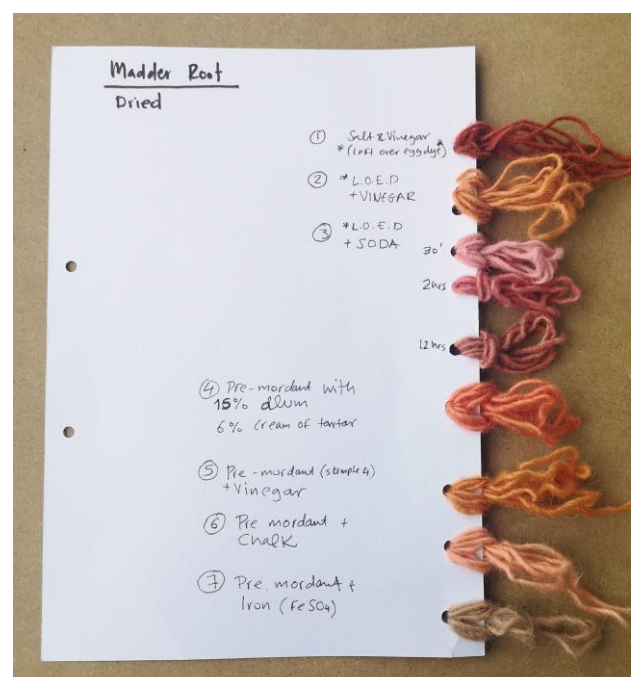 Madder Root
Dried
① Salt & Vinegar *
* (left over egg dye)
② *L.O.E.D
+ VINEGAR
③ *L.O.E.D
+ SODA
30'
2hrs
12 hrs
④ Pre-mordant with
15% alum
6% cream of tartar
⑤ Pre-mordant (sample 4)
+ Vinegar
⑥ Pre mordant +
Chalk
⑦ Pre. mordant +
Iron (FeSO4)